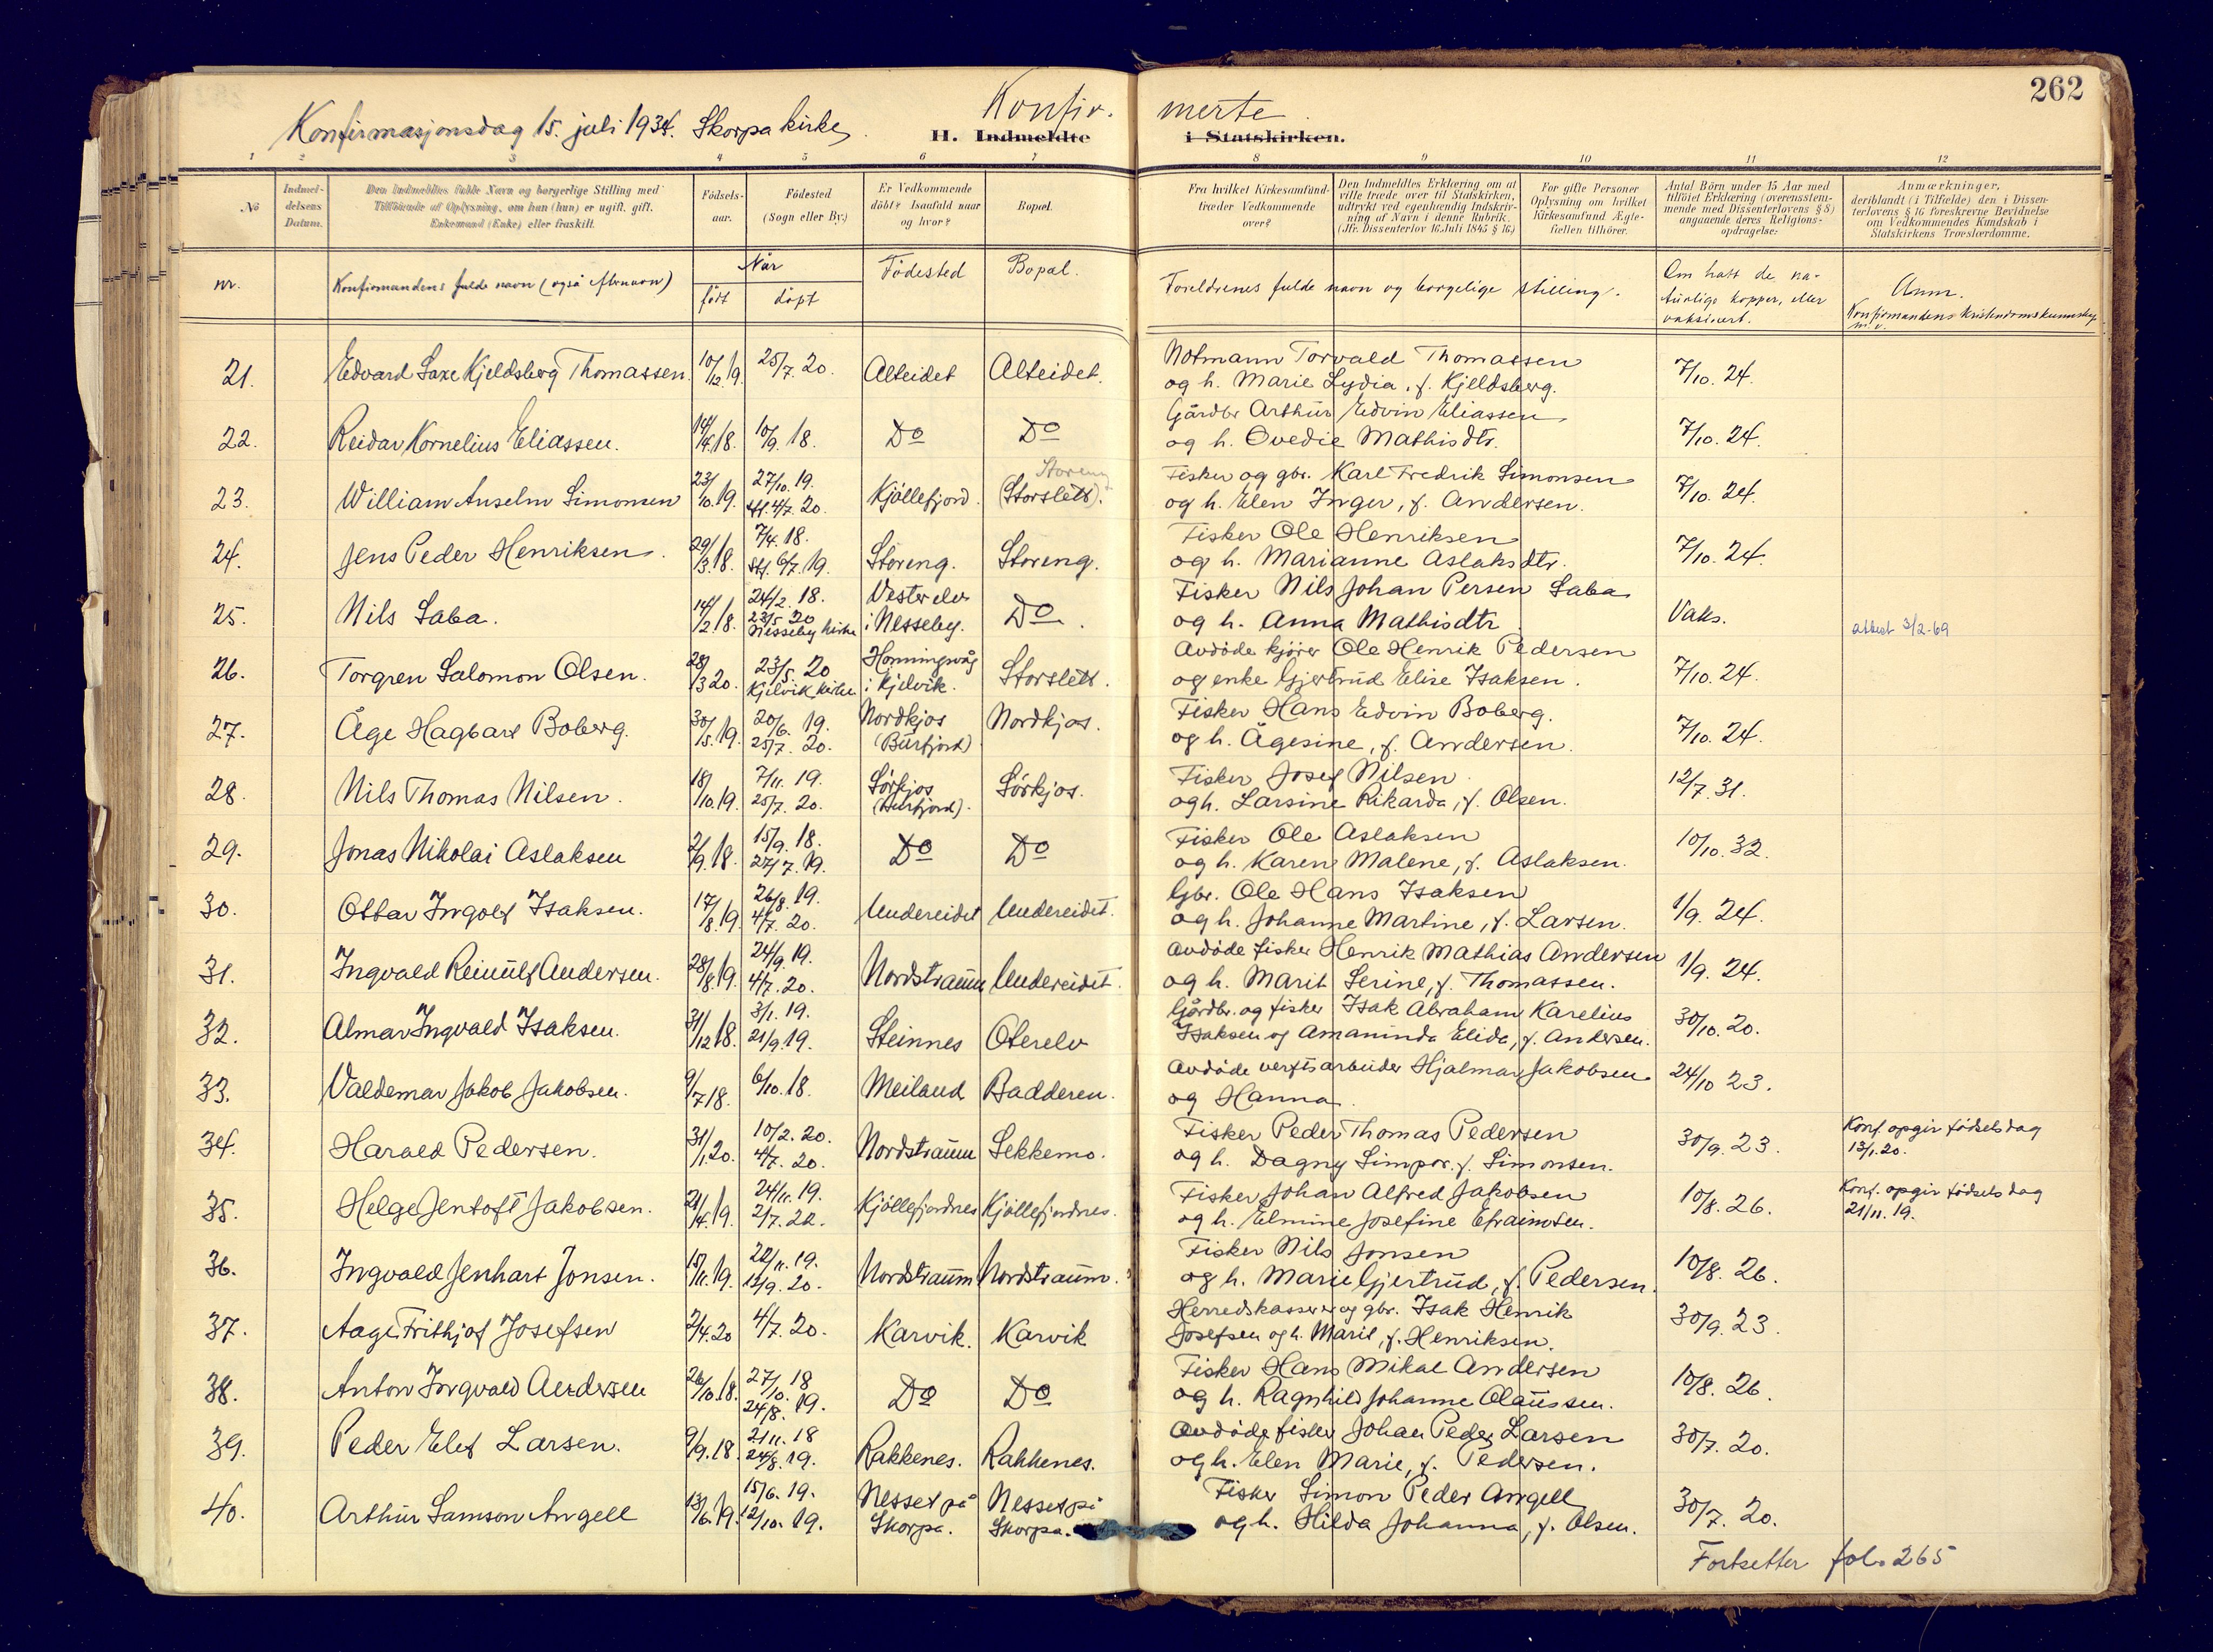 262
Konfirmasjonsdag 15. juli 1934. Skorpa kirke
Konfir. merte
H. Indmeldte i Statskirken.
1 2 3 4 5 6 7 8 9 10 11 12
No
Indmel-
delsens
Datum.
Den Indmeldtes fulde Navn og borgerlige Stilling med
Tilføiende af Oplysning, om han (hun) er ugift, gift,
Enkemand (Enke) eller fraskilt.
Födsels-
aar.
Födested
(Sogn eller By.)
Er Vedkommende
döbt? Isaafald naar
og hvor?
Bopæl.
Fra hvilket Kirkesamfund
træder Vedkommende
over?
Den Indmeldtes Erklæring om at
ville træde over til Statskirken,
udtrykt ved egenhændig Indskriv-
ning af Navn i denne Rubrik.
(Jfr. Dissenterlov 16. Juli 1845 § 16.)
For gifte Personer
Oplysning om hvilket
Kirkesamfund Ægte-
fællen tilhörer.
Antal Börn under 15 Aar med
tilföiet Erklæring (overensstem-
mende med Dissenterlovens § 8)
angaaende deres Religions-
opdragelse.
Anmærkninger,
deriblandt (i Tilfælde) den i Dissen-
terlovens § 16 foreskrevne Bevidnelse
om Vedkommendes Kundskab i
Statskirkens Troeslærdomme.
nr.
Konfirmandens fulde navn (også etternavn)
Når
født
døpt
Fødested
Bopæl.
Foreldrenes fulde navn og borgelige stilling.
Om hatt de na-
turlige kopper, eller
vaksinert.
Anm.
Konfirmandens kristendomskunnskap
m.v.
21. Edvard Saxe Kjeldsberg Thomassen. 10/12 19. 25/7. 20. Alteidet Alteidet. Notmann Torvald Thomassen
og h. Marie Lydia, f. Kjeldsberg. 7/10. 24.
22. Reidar Kornelius Eliassen. 14/4. 18. 10/9. 18. Do Do Gårdbr Arthur Edvin Eliassen
og h. Ovedie Mathisdtr. 7/10. 24.
23. William Anselm Simonsen 23/10. 19. 27/10. 19. Kjøllefjord. (Storslett). Storeng Fisker og gbr. Karl Fredrik Simonsen
stf. 4/7. 20. og h. Elen Inger, f. Andersen. 7/10. 24.
24. Jens Peder Henriksen. 29/3. 18. 7/4. 18. Storeng. Storeng. Fisker Ole Henriksen
stf. 6/7. 19. og h. Marianne Aslaksdtr. 7/10. 24.
25. Nils Saba. 14/2 18. 24/2. 18. Vesterelv Do. Fisker Nils Johan Persen Saba
23/5 20 i Nesseby. og h. Anna Mathisdtr Vaks. attest 3/2-69
Nesseby kirke
26. Torgren Salomon Olsen. 28/3 20. 23/5. 20 Honningsvåg Storslett. Avdøde kjører Ole Henrik Pedersen
Kjelvik kirke i Kjelvik. og enke Gjertrud Elise Isaksen. 7/10. 24.
27. Åge Hagbart Boberg. 30/5. 19. 20/6. 19. Nordkjos Nordkjos. Fisker Hans Edvin Boberg.
25/7. 20. (Burfjord) og h. Ågesine, f. Andersen. 7/10. 24.
28. Nils Thomas Nilsen. 18/10. 19. 7/11. 19. Sørkjos Sørkjos. Fisker Josef Nilsen.
25/7. 20. (Burfjord). og h. Larsine Rikarda, f. Olsen. 12/7. 31.
29. Jonas Nikolai Aslaksen 2/9. 18. 15/9. 18. Do Do Fisker Ole Aslaksen
27/7. 19. og h. Karen Malene, f. Aslaksen. 10/10. 32.
30. Ottar Ingolf Isaksen. 17/8. 19. 26/8. 19. Undereidet Undereidet. Gbr. Ole Hans Isaksen
4/7. 20. og h. Johanne Martine, f. Larsen. 1/9. 24.
31. Ingvald Reinulf Andersen. 28/8. 19. 24/9. 19. Nordstraum Undereidet. Avdøde fisker Henrik Mathias Andersen
4/7. 20. og h. Marit Serine, f. Thomassen. 1/9. 24.
32. Almar Ingvald Isaksen. 31/12 18. 3/1. 19. Steinnes Oterelv Gårdbr. og fisker Isak Abraham Karelius
21/9. 19. Isaksen og Amaninda Elida, f. Andersen. 30/10. 20.
33. Valdemar Jakob Jakobsen. 9/7 18. 6/10. 18. Meiland Badderen. Avdøde verftsarbeider Hjalmar Jakobsen
og Hanna. 24/10 23.
34. Harald Pedersen. 31/1. 20. 10/2. 20. Nordstraum Sekkemo. Fisker Peder Thomas Pedersen
4/7. 20. og h. Dagny Simpor. f. Simonsen. 30/9. 23. Konf. opgir fødselsdag
13/1. 20.
35. Helge Jentoft Jakobsen. 21/4. 19. 24/11. 19. Kjøllefjordnes Kjøllefjordnes. Fisker Johan Alfred Jakobsen
2/7. 22. og h. Elmine Josefine Efraimsen. 10/8. 26. Konf. opgir fødselsdag
21/11. 19.
36. Ingvald Jenhart Jonsen. 15/11. 19. 22/11. 19. Nordstraum Nordstraum. Fisker Nils Jonsen
12/9. 20. og h. Marie Gjertrud, f. Pedersen. 10/8. 26.
37. Aage Frithjof Josefsen 2/4. 20 4/7. 20. Karvik. Karvik Herredskasserer og gbr. Isak Henrik
Josefsen og h. Marit, f. Henriksen. 30/9. 23.
38. Anton Ingvald Andersen 26/10. 18. 27/10. 18 Do Do Fisker Hans Mikal Andersen
24/8. 19. og h. Ragnhild Johanne Olaussen. 10/8. 26.
39. Peder Elef Larsen. 9/9. 18. 21/11. 18 Rakkenes. Rakkenes. Avdøde fisker Johan Peder Larsen
24/8. 19. og h. Elen Marie, f. Pedersen. 30/7. 20.
40. Arthur Samson Angell 13/6. 19. 15/6. 19. Nesset på Nesset på Fisker Simon Peder Angell
12/10. 19. Skorpa. Skorpa. og h. Hilda Johanna, f. Olsen. 30/7. 20.
Fortsetter fol. 265